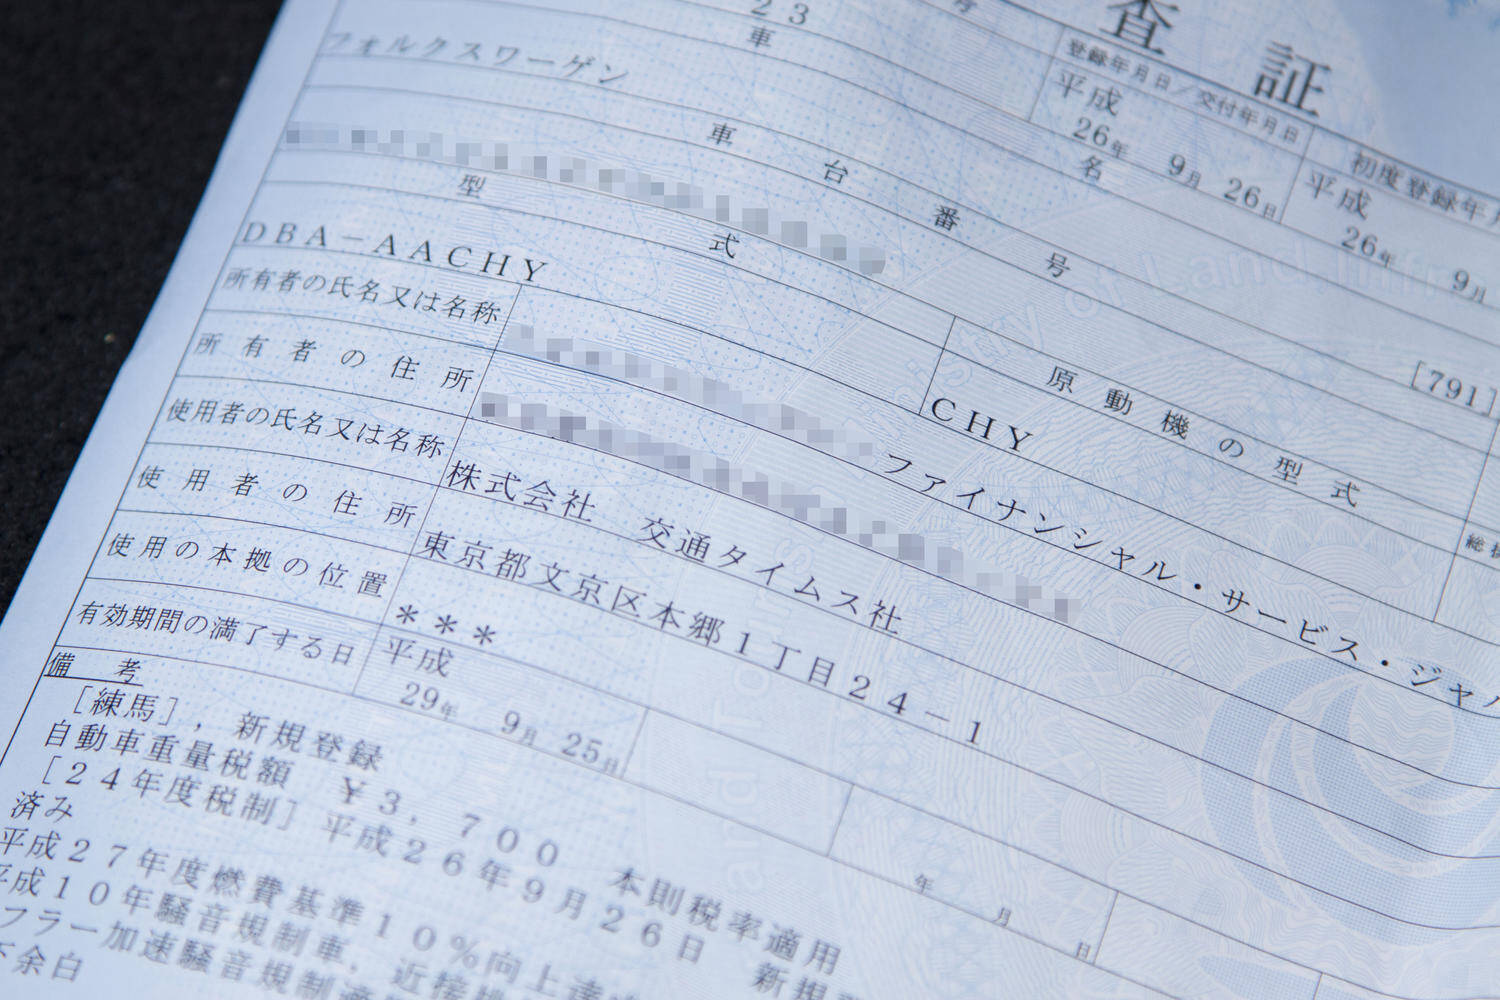 査 証
23 号 登録年月日／交付年月日 初度登録年月
車 名 平成 26年 9月 26日 平成 26年 9月
フォルクスワーゲン [791]
車 台 番 号
型 式 原動機の型式
DBA－AACHY CHY
所有者の氏名又は名称 ファイナンシャル・サービス・ジャ
所有者の住所
使用者の氏名又は名称 株式会社 交通タイムス社
使用者の住所 東京都文京区本郷１丁目２４－１
使用の本拠の位置 ＊＊＊
有効期間の満了する日 平成 29年 9月 25日 年 月 日
備 考
［練馬］，新規登録
自動車重量税額 ￥３，７００ 本則税率適用
［２４年度税制］平成２６年９月２６日 新規
済み
平成２７年度燃費基準１０％向上達
平成１０年騒音規制車，近接
フラー加速騒音規制
余白